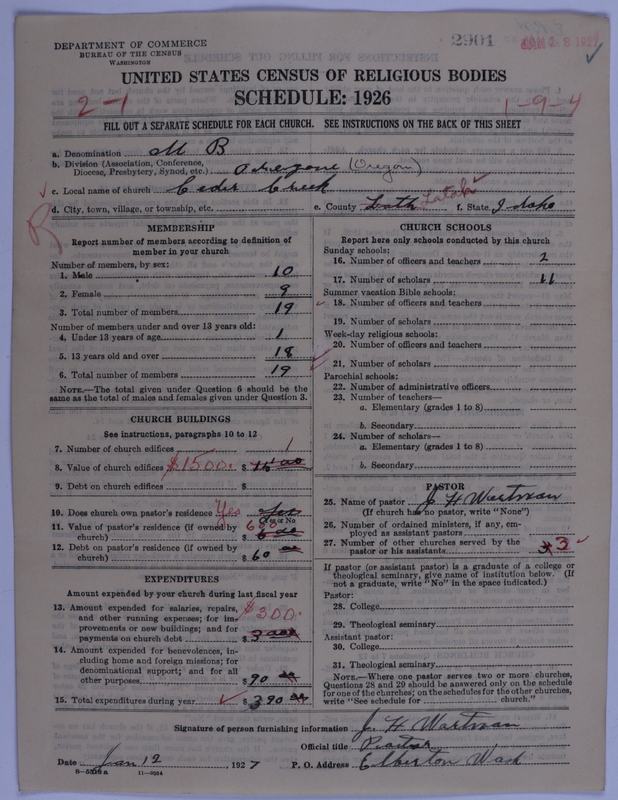 DEPARTMENT OF COMMERCE
BUREAU OF THE CENSUS
WASHINGTON
2904
UNITED STATES CENSUS OF RELIGIOUS BODIES
SCHEDULE: 1926
2-1
1-9-4
FILL OUT A SEPARATE SCHEDULE FOR EACH CHURCH. SEE INSTRUCTIONS ON THE BACK OF THIS SHEET
a. Denomination M B
b. Division (Association, Conference, Diocese, Presbytery, Synod, etc.) (Oregon)
c. Local name of church Ceder Creek
d. City, town, village, or township, etc.
e. County Lath Latah f. State Idaho
MEMBERSHIP
Report number of members according to definition of
member in your church
Number of members, by sex:
1. Male 10
2. Female 9
3. Total number of members 19
Number of members under and over 13 years old:
4. Under 13 years of age 1
5. 13 years old and over 18
6. Total number of members 19
NOTE.—The total given under Question 6 should be the
same as the total of males and females given under Question 3.
CHURCH BUILDINGS
See instructions, paragraphs 10 to 12
7. Number of church edifices 1
8. Value of church edifices $1500. $ 15 00
9. Debt on church edifices $
10. Does church own pastor's residence Yes yes
Yes or No
11. Value of pastor's residence (if owned by
church) 600 $ 6 00
12. Debt on pastor's residence (if owned by
church) $ 60 00
EXPENDITURES
Amount expended by your church during last fiscal year
13. Amount expended for salaries, repairs,
and other running expenses; for im-
provements or new buildings; and for
payments on church debt $300. $ 3 00
14. Amount expended for benevolences, in-
cluding home and foreign missions; for
denominational support; and for all
other purposes $ 90
15. Total expenditures during year $ 390
CHURCH SCHOOLS
Report here only schools conducted by this church
Sunday schools:
16. Number of officers and teachers 2
17. Number of scholars 11
Summer vacation Bible schools:
18. Number of officers and teachers
19. Number of scholars
Week-day religious schools:
20. Number of officers and teachers
21. Number of scholars
Parochial schools:
22. Number of administrative officers
23. Number of teachers—
a. Elementary (grades 1 to 8)
b. Secondary
24. Number of scholars—
a. Elementary (grades 1 to 8)
b. Secondary
PASTOR
25. Name of pastor J H Wartman
(If church has no pastor, write "None")
26. Number of ordained ministers, if any, em-
ployed as assistant pastors
27. Number of other churches served by the
pastor or his assistants 3
If pastor (or assistant pastor) is a graduate of a college or
theological seminary, give name of institution below. (If
not a graduate, write "No" in the space indicated.)
Pastor:
28. College
29. Theological seminary
Assistant pastor:
30. College
31. Theological seminary
NOTE.—Where one pastor serves two or more churches,
Questions 28 and 29 should be answered only on the schedule
for one of the churches; on the schedules for the other churches,
write "See schedule for church."
Signature of person furnishing information J. H Wartman
Official title Pastor
Date Jan 12, 1927 P. O. Address Elberton Wash
8-5028a 11-9554